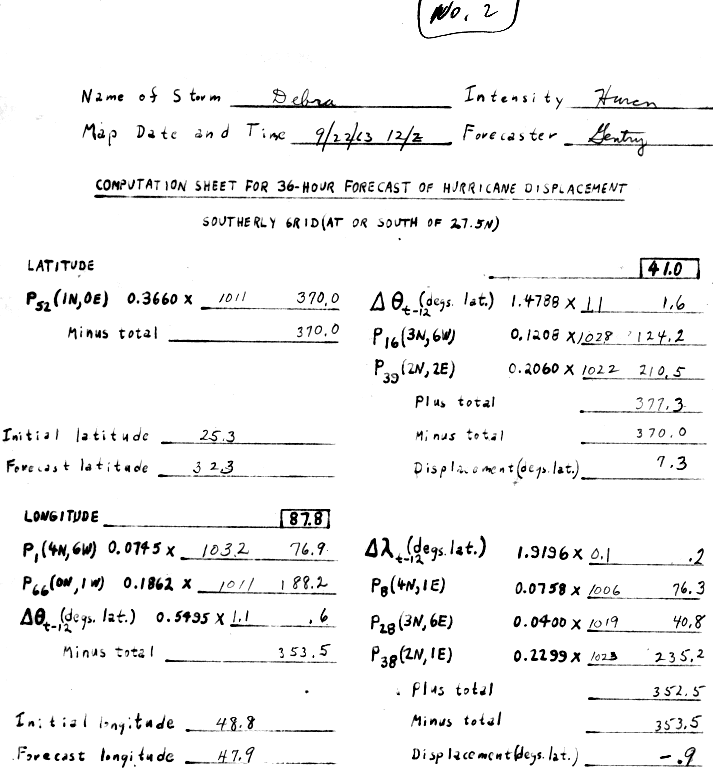 No. 2
Name of Storm Debra Intensity Hurcn
Map Date and Time 9/22/63 12/Z Forecaster Gentry
COMPUTATION SHEET FOR 36-HOUR FORECAST OF HURRICANE DISPLACEMENT
SOUTHERLY GRID (AT OR SOUTH OF 27.5N)
LATITUDE 41.0
P52(1N,0E) 0.3660 X 1011 370.0 Δθt-12(degs. lat.) 1.4788 X 1.1 1.6
Minus total 370.0 P16(3N,6W) 0.1208 X 1028 124.2
P39(2N,2E) 0.2060 X 1022 210.5
Plus total 377.3
Initial latitude 25.3 Minus total 370.0
Forecast latitude 32.3 Displacement (degs. lat.) 7.3
LONGITUDE 87.8
P1(4N,6W) 0.0745 X 1032 76.9 Δλt-12(degs. lat.) 1.9196 X 0.1 .2
P66(0N,1W) 0.1862 X 1011 188.2 P8(4N,1E) 0.0758 X 1006 76.3
Δθt-12(degs. lat.) 0.5495 X 1.1 .6 P28(3N,6E) 0.0400 X 1019 40.8
Minus total 353.5 P38(2N,1E) 0.2299 X 1023 235.2
Plus total 352.5
Initial longitude 48.8 Minus total 353.5
Forecast longitude 47.9 Displacement (degs. lat.) -.9